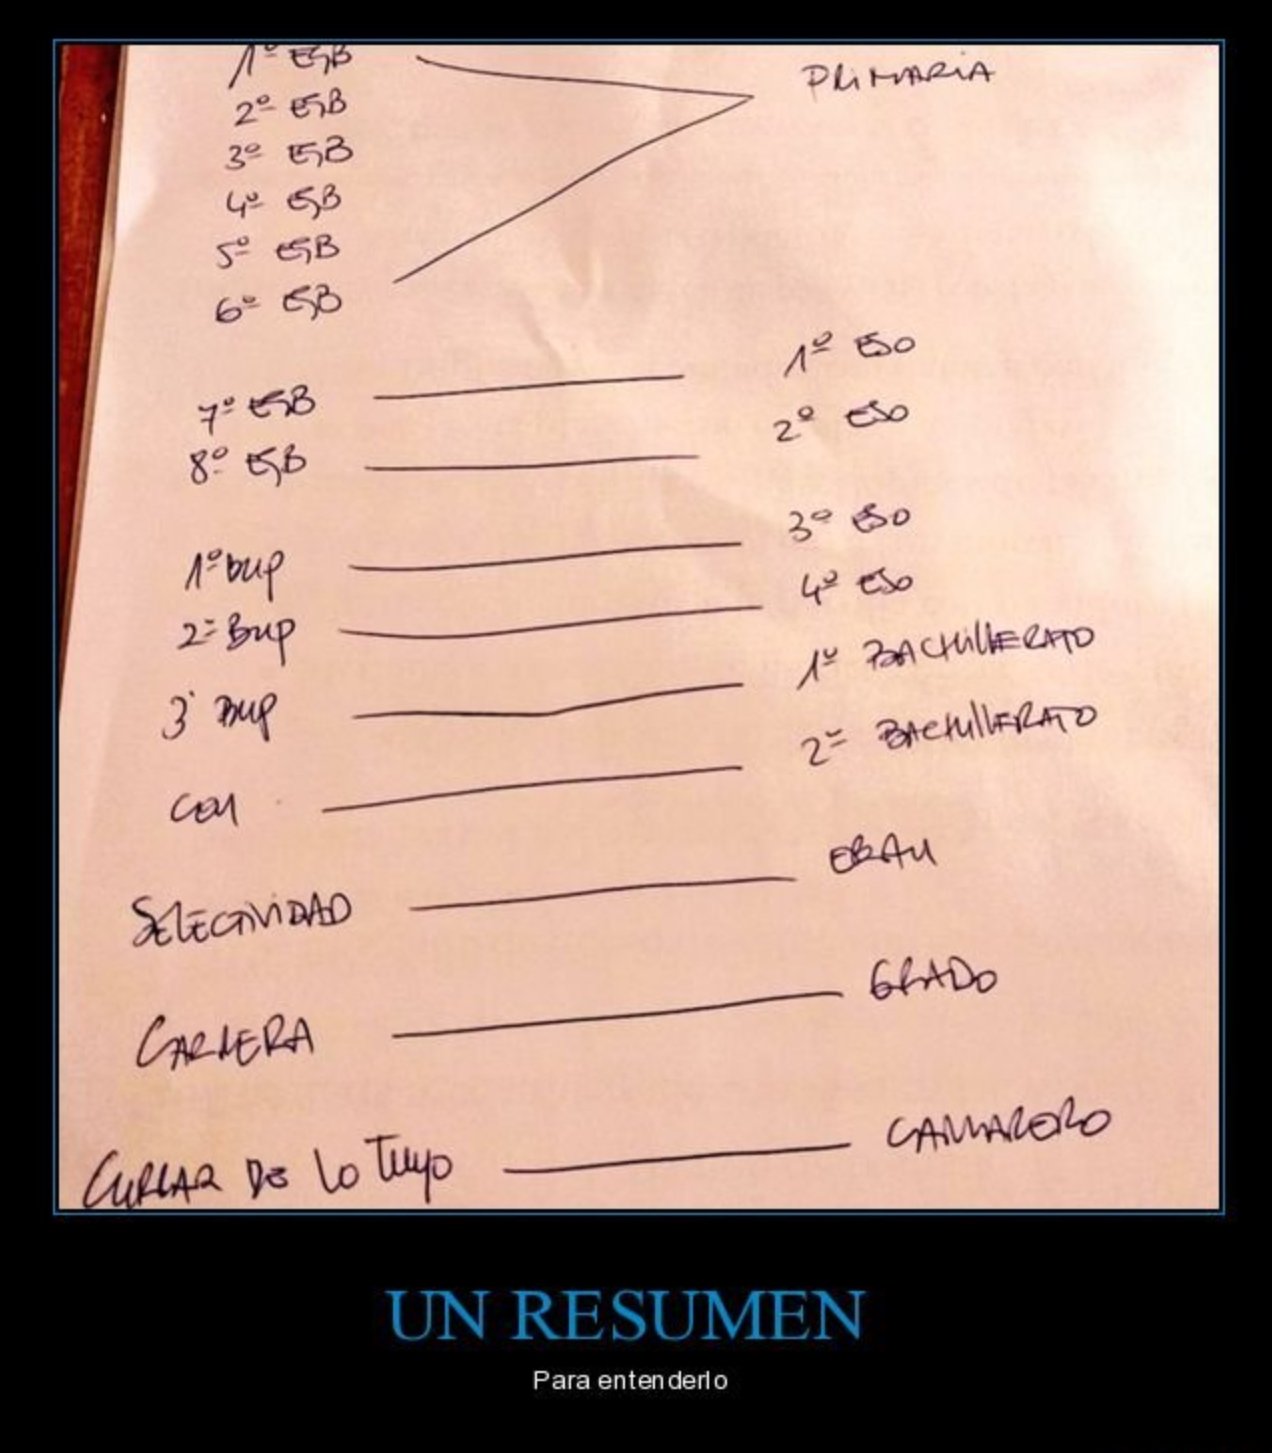 1º EGB PRIMARIA
2º EGB
3º EGB
4º EGB
5º EGB
6º EGB
7º EGB 1º ESO
8º EGB 2º ESO
1º BUP 3º ESO
2º BUP 4º ESO
3º BUP 1º BACHILLERATO
COU 2º BACHILLERATO
SELECTIVIDAD EBAU
CARRERA GRADO
CURRAR DE LO TUYO CAMARERO
UN RESUMEN
Para entenderlo